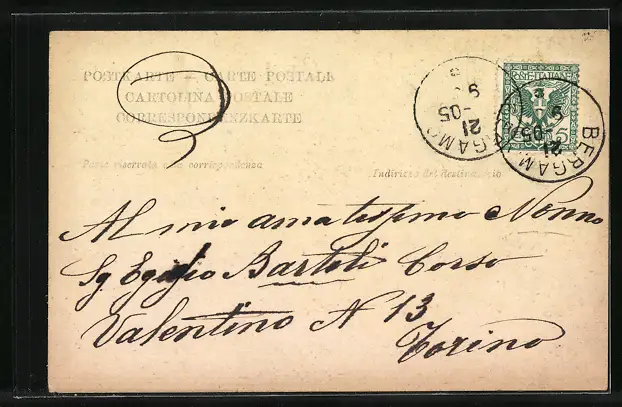 POSTKARTE – CARTE POSTALE
CARTOLINA POSTALE
CORRESPONDENZKARTE
Parte riservata alla corrispondenza
Indirizzo del destinatario
POSTE ITALIANE
5
BERGAMO
21
9
05
BERGAMO
21
9
05
Al mio amatissimo Nonno
Sg Egidio Bartoli Corso
Valentino N 13
Torino